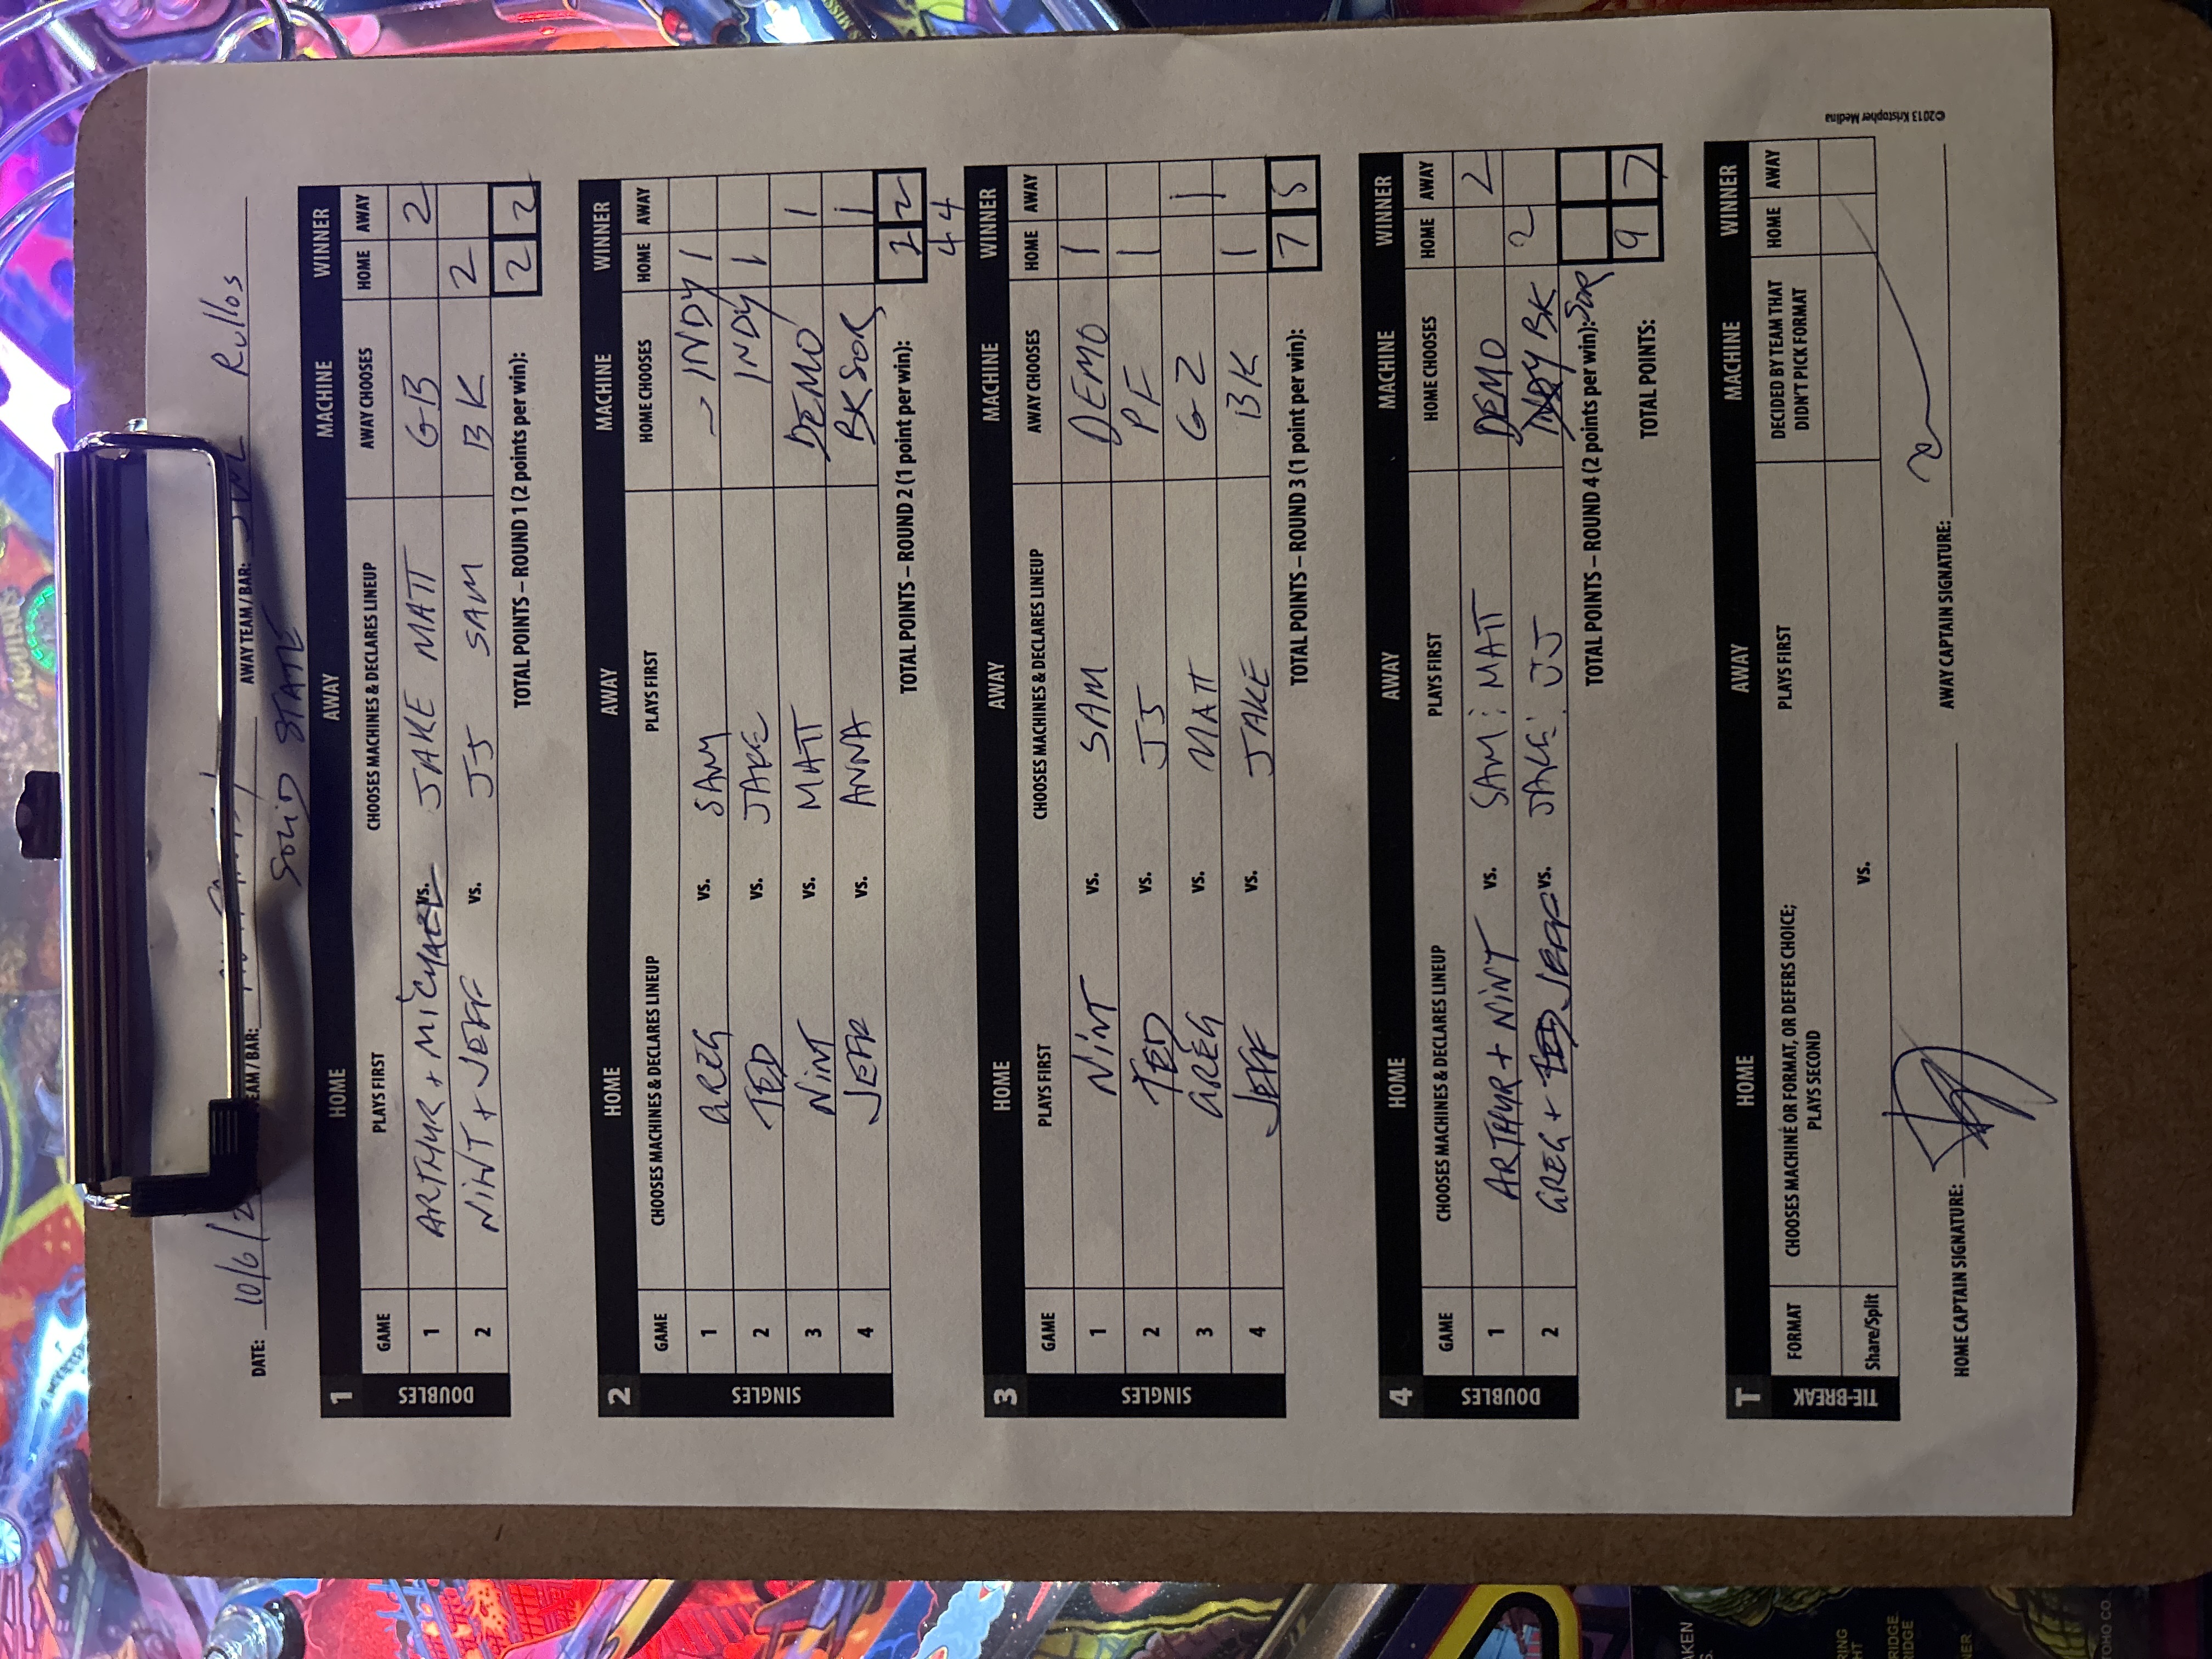 DATE: 10/6/2 TEAM / BAR: AWAY TEAM / BAR: Rullos
SOLID STATE
1 HOME AWAY MACHINE WINNER
GAME PLAYS FIRST CHOOSES MACHINES & DECLARES LINEUP AWAY CHOOSES HOME AWAY
DOUBLES
1 ARTHUR + MICHAEL vs. JAKE MATT GB 2
2 NINT + JEFF vs. JJ SAM BK 2
TOTAL POINTS – ROUND 1 (2 points per win): 2 2
2 HOME AWAY MACHINE WINNER
GAME CHOOSES MACHINES & DECLARES LINEUP PLAYS FIRST HOME CHOOSES HOME AWAY
SINGLES
1 GREG vs. SAM INDY 1
2 TED vs. JAKE INDY 1
3 NINT vs. MATT DEMO 1
4 JEFF vs. ANNA BKSOR 1
TOTAL POINTS – ROUND 2 (1 point per win): 2 2
4 4
3 HOME AWAY MACHINE WINNER
GAME PLAYS FIRST CHOOSES MACHINES & DECLARES LINEUP AWAY CHOOSES HOME AWAY
SINGLES
1 NINT vs. SAM DEMO 1
2 TED vs. JJ PF 1
3 GREG vs. MATT GZ 1
4 JEFF vs. JAKE BK 1
TOTAL POINTS – ROUND 3 (1 point per win): 7 5
4 HOME AWAY MACHINE WINNER
GAME CHOOSES MACHINES & DECLARES LINEUP PLAYS FIRST HOME CHOOSES HOME AWAY
DOUBLES
1 ARTHUR + NINT vs. SAM : MATT DEMO 2
2 GREG + TED JEFF vs. JAKE : JJ INDY BK 2
TOTAL POINTS – ROUND 4 (2 points per win): SOR
TOTAL POINTS: 9 7
T HOME AWAY MACHINE WINNER
FORMAT CHOOSES MACHINE OR FORMAT, OR DEFERS CHOICE; PLAYS SECOND PLAYS FIRST DECIDED BY TEAM THAT DIDN'T PICK FORMAT HOME AWAY
TIE-BREAK
Share/Split vs.
HOME CAPTAIN SIGNATURE: AWAY CAPTAIN SIGNATURE:
©2013 Kristopher Medina